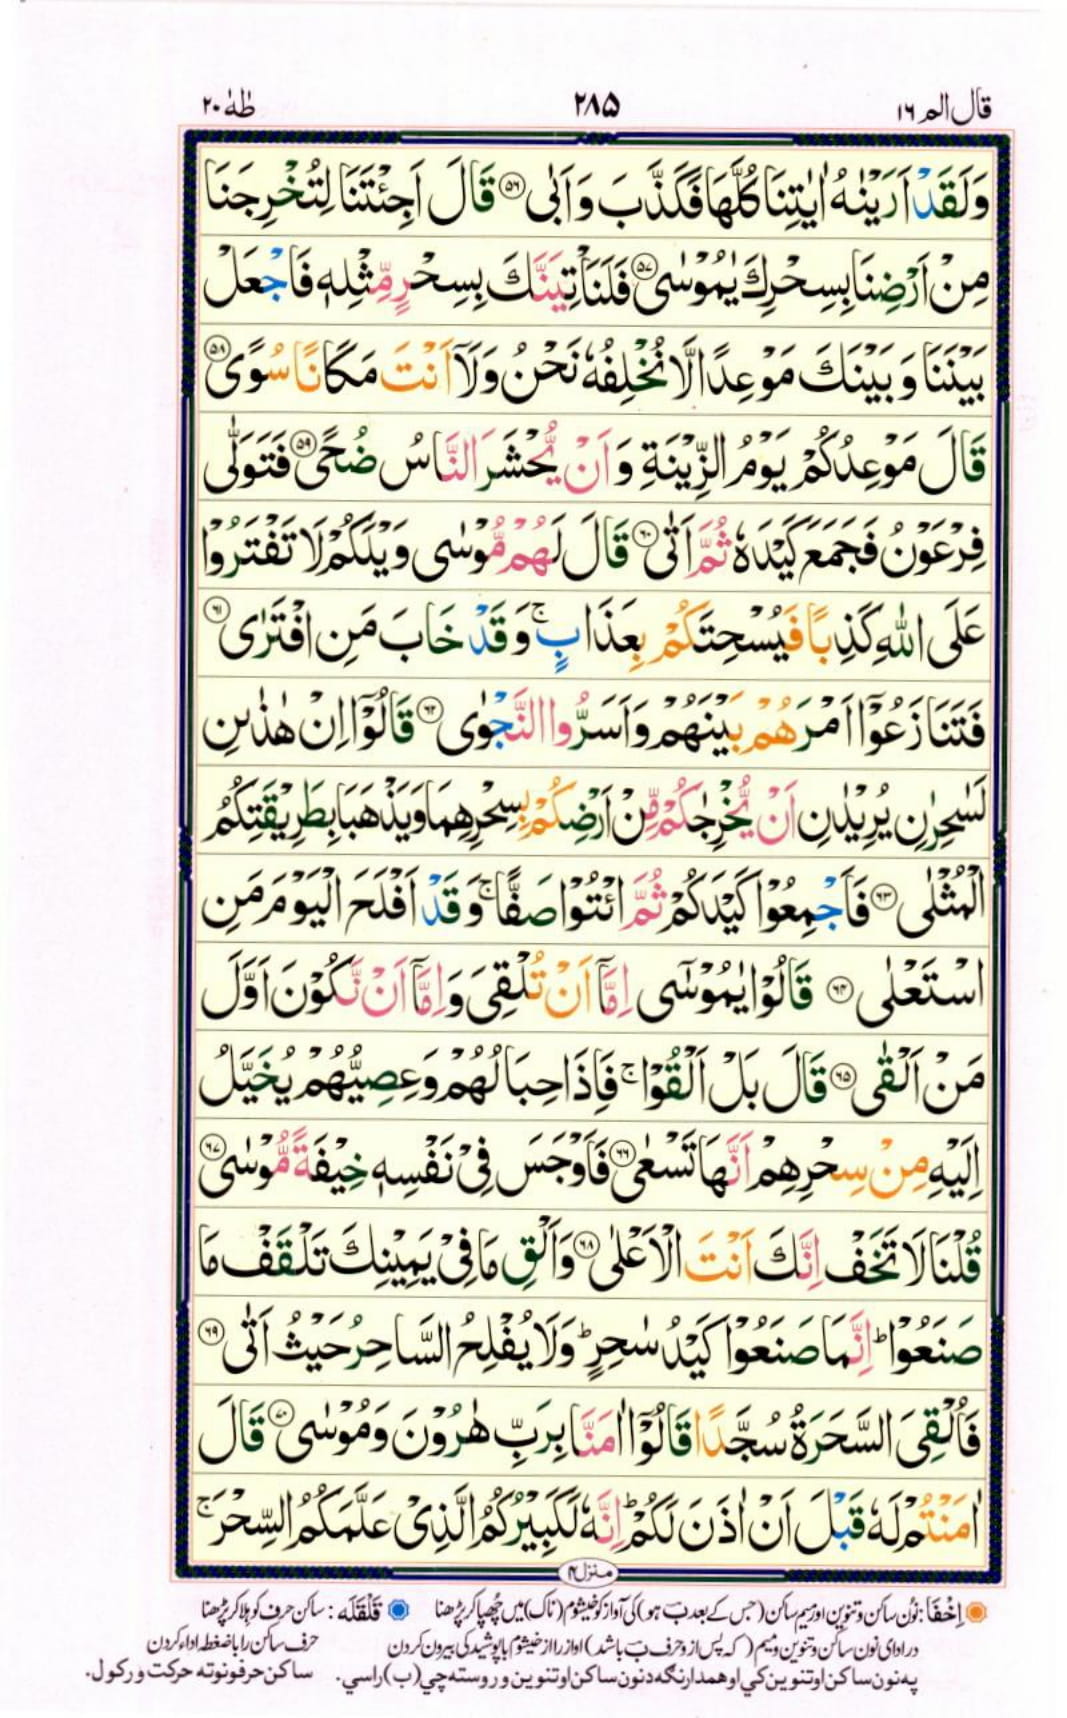 قال الم ١٦ ٢٨٥ طٰهٰ ٢٠
وَلَقَدْ اَرَيْنٰهُ اٰيٰتِنَا كُلَّهَا فَكَذَّبَ وَاَبٰى ﴿٥٦﴾ قَالَ اَجِئْتَنَا لِتُخْرِجَنَا
مِنْ اَرْضِنَا بِسِحْرِكَ يٰمُوْسٰى ﴿٥٧﴾ فَلَنَاْتِيَنَّكَ بِسِحْرٍ مِّثْلِهٖ فَاجْعَلْ
بَيْنَنَا وَ بَيْنَكَ مَوْعِدًا لَّا نُخْلِفُهٗ نَحْنُ وَلَاۤ اَنْتَ مَكَانًا سُوًى ﴿٥٨﴾
قَالَ مَوْعِدُكُمْ يَوْمُ الزِّيْنَةِ وَ اَنْ يُّحْشَرَ النَّاسُ ضُحًى ﴿٥٩﴾ فَتَوَلّٰى
فِرْعَوْنُ فَجَمَعَ كَيْدَهٗ ثُمَّ اَتٰى ﴿٦٠﴾ قَالَ لَهُمْ مُّوْسٰى وَيْلَكُمْ لَا تَفْتَرُوْا
عَلَى اللّٰهِ كَذِبًا فَيُسْحِتَكُمْ بِعَذَابٍ ۚ وَقَدْ خَابَ مَنِ افْتَرٰى ﴿٦١﴾
فَتَنَازَعُوْۤا اَمْرَهُمْ بَيْنَهُمْ وَاَسَرُّوا النَّجْوٰى ﴿٦٢﴾ قَالُوْۤا اِنْ هٰذٰىنِ
لَسٰحِرٰنِ يُرِيْدٰنِ اَنْ يُّخْرِجٰكُمْ مِّنْ اَرْضِكُمْ بِسِحْرِهِمَا وَيَذْهَبَا بِطَرِيْقَتِكُمُ
الْمُثْلٰى ﴿٦٣﴾ فَاَجْمِعُوْا كَيْدَكُمْ ثُمَّ ائْتُوْا صَفًّا ۚ وَقَدْ اَفْلَحَ الْيَوْمَ مَنِ
اسْتَعْلٰى ﴿٦٤﴾ قَالُوْا يٰمُوْسٰۤى اِمَّاۤ اَنْ تُلْقِىَ وَاِمَّاۤ اَنْ نَّكُوْنَ اَوَّلَ
مَنْ اَلْقٰى ﴿٦٥﴾ قَالَ بَلْ اَلْقُوْا ۚ فَاِذَا حِبَالُهُمْ وَعِصِيُّهُمْ يُخَيَّلُ
اِلَيْهِ مِنْ سِحْرِهِمْ اَنَّهَا تَسْعٰى ﴿٦٦﴾ فَاَوْجَسَ فِىْ نَفْسِهٖ خِيْفَةً مُّوْسٰى ﴿٦٧﴾
قُلْنَا لَا تَخَفْ اِنَّكَ اَنْتَ الْاَعْلٰى ﴿٦٨﴾ وَاَلْقِ مَا فِىْ يَمِيْنِكَ تَلْقَفْ مَا
صَنَعُوْا ؕ اِنَّمَا صَنَعُوْا كَيْدُ سٰحِرٍ ؕ وَلَا يُفْلِحُ السَّاحِرُ حَيْثُ اَتٰى ﴿٦٩﴾
فَاُلْقِىَ السَّحَرَةُ سُجَّدًا قَالُوْۤا اٰمَنَّا بِرَبِّ هٰرُوْنَ وَمُوْسٰى ﴿٧٠﴾ قَالَ
اٰمَنْتُمْ لَهٗ قَبْلَ اَنْ اٰذَنَ لَكُمْ ؕ اِنَّهٗ لَكَبِيْرُكُمُ الَّذِىْ عَلَّمَكُمُ السِّحْرَ ۚ
منزل ٤
اِخْفَا: نُون ساکن و تنوین اور میم ساکن (جس کے بعد ب ہو) کی آواز کو خیشوم (ناک) میں چُھپا کر پڑھنا قَلْقَلَه: ساکن حرف کو ہلا کر پڑھنا
در ادای نون ساکن و تنوین و میم (که پس از و حرف ب باشد) آواز را از خیشوم با پوشیدگی بیرون کردن حرف ساکن را با ضغطه اداء کردن
په نون ساکن او تنوین کي او همدارنگه د نون ساکن او تنوین وروسته چي (ب) راسي. ساکن حرفونو ته حرکت ورکول.